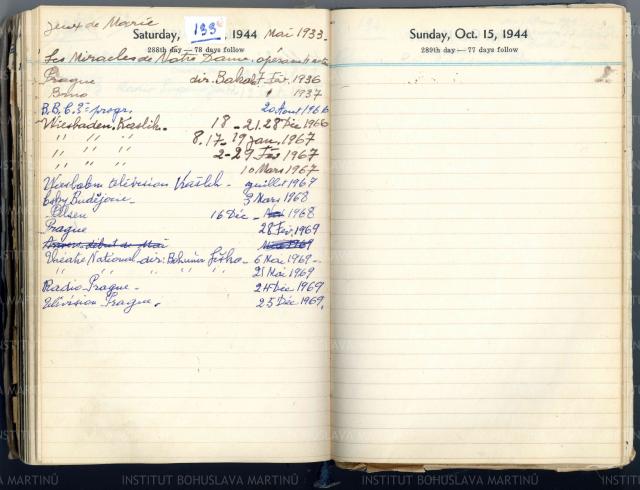 Jeux de Marie
Saturday, 133 , 1944 Mai 1933-
288th day — 78 days follow
Les Miracles de Notre Dame. opéra
Prague dir. Bakala Fév. 1936
Brno " 1937
B.B.C. 3e progr. 20 Aout 1966
Wiesbaden. Kaslik. 18 - 21. 28 Déc 1966
" " " 8. 17. 19 Jan. 1967
" " " 2 - 29 Fév 1967
" " " 10 Mars 1967
télévision Kašlik. juillet 1967
Budějovic. 3 Mars 1968
Pilsen 16 Déc - 1968
Prague 28 Fév. 1969
début de Mai 1969
Théatre National dir: Bohumir 6 Mai 1969 -
" " " " " " 21 Mai 1969
Radio Prague - 24 Déc 1969
télévision Prague. 25 Déc 1969.
Sunday, Oct. 15, 1944
289th day — 77 days follow
INSTITUT BOHUSLAVA MARTINŮ
INSTITUT BOHUSLAVA MARTINŮ